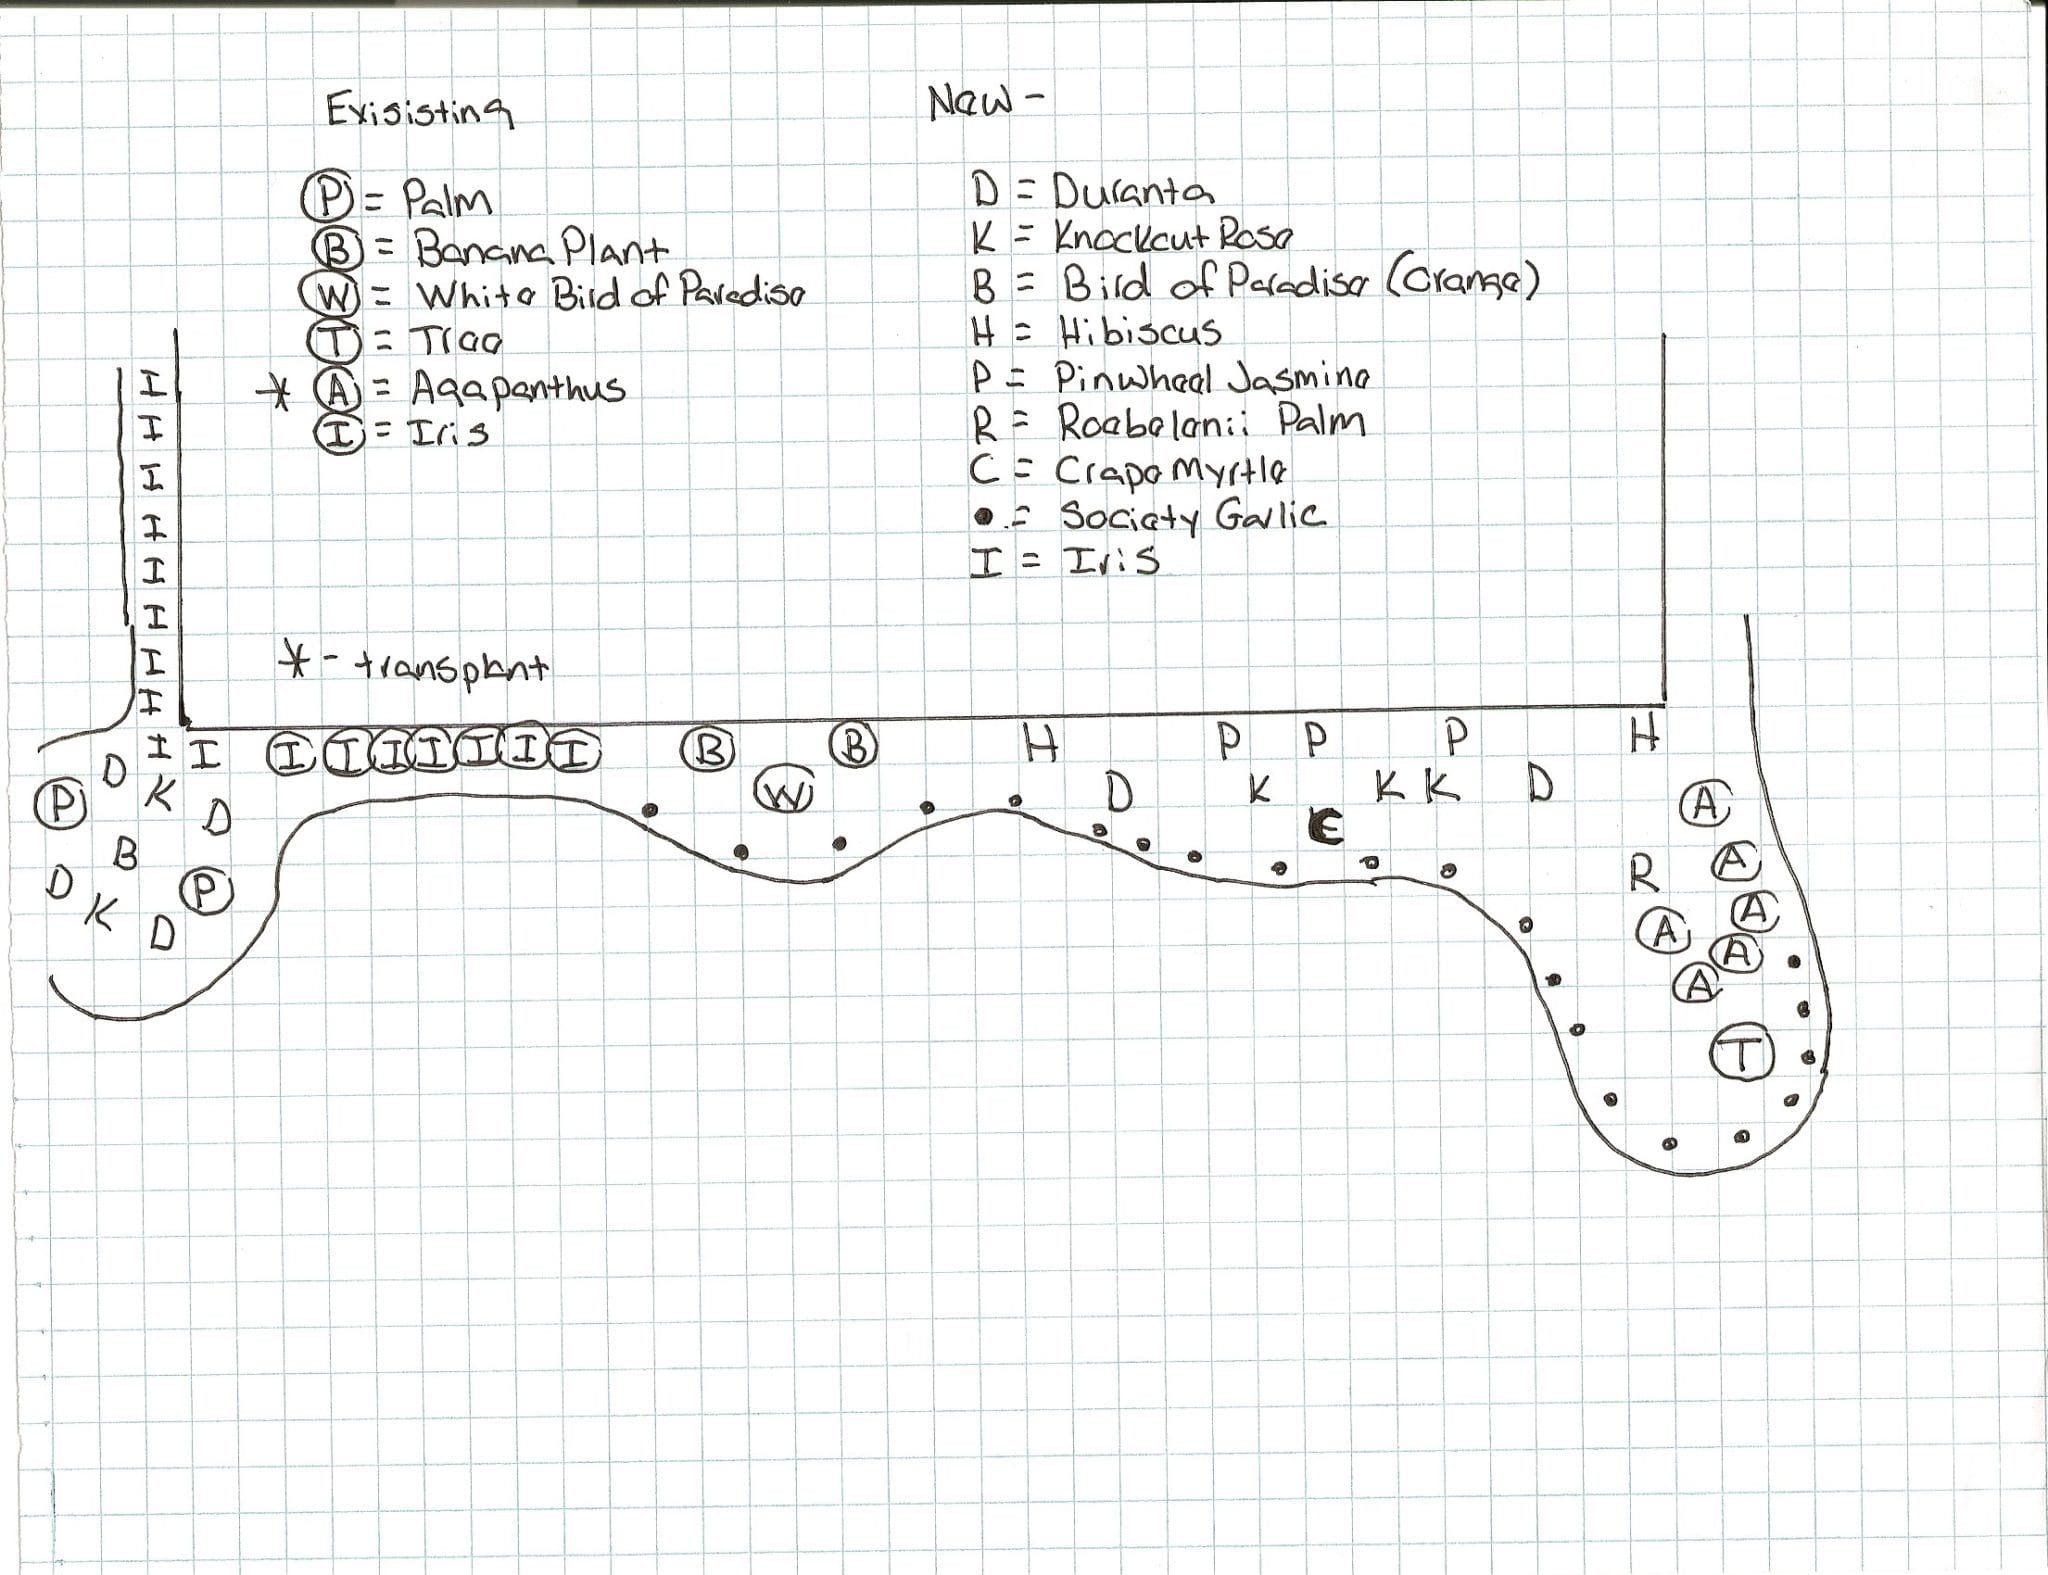 Exisisting
P = Palm
B = Banana Plant
W = White Bird of Paredise
T = Tree
* A = Agapanthus
I = Iris
* - transplant
New -
D = Duranta
K = Knockout Rose
B = Bird of Paradise (Orange)
H = Hibiscus
P = Pinwheel Jasmine
R = Roebelenii Palm
C = Crape Myrtle
• = Society Garlic
I = Iris
I
I
I
I
I
I
I
I
I I I I I I I I I B B H P P P H
D K D W D K K K D
P C A
B R A
D P A
K A
D A
A
T